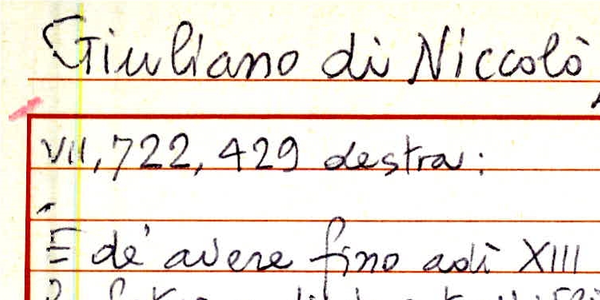 Giuliano di Niccolò,
VII, 722, 429 destra:
E dè avere fino adì XIII